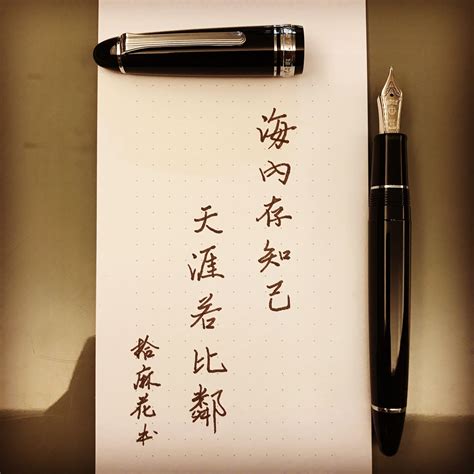 海內存知己
天涯若比鄰
拾麻花书